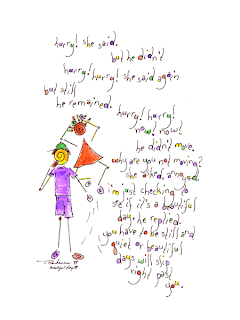 hurry! she said.
but he didn't
hurry! hurry! she said again
but still
he remained.
hurry! hurry!
now! now!
he didn't move.
why are you not moving?
she asked, annoyed.
i'm just checking to
see if it's a beautiful
day. he replied.
you have to be still and
quiet or beautiful
days will slip
right past
you.
beautiful day